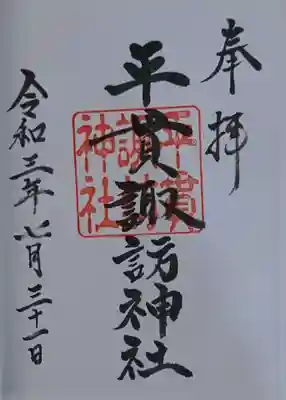 奉拝
平貫諏訪神社
平貫
諏訪
神社
令和三年七月三十一日